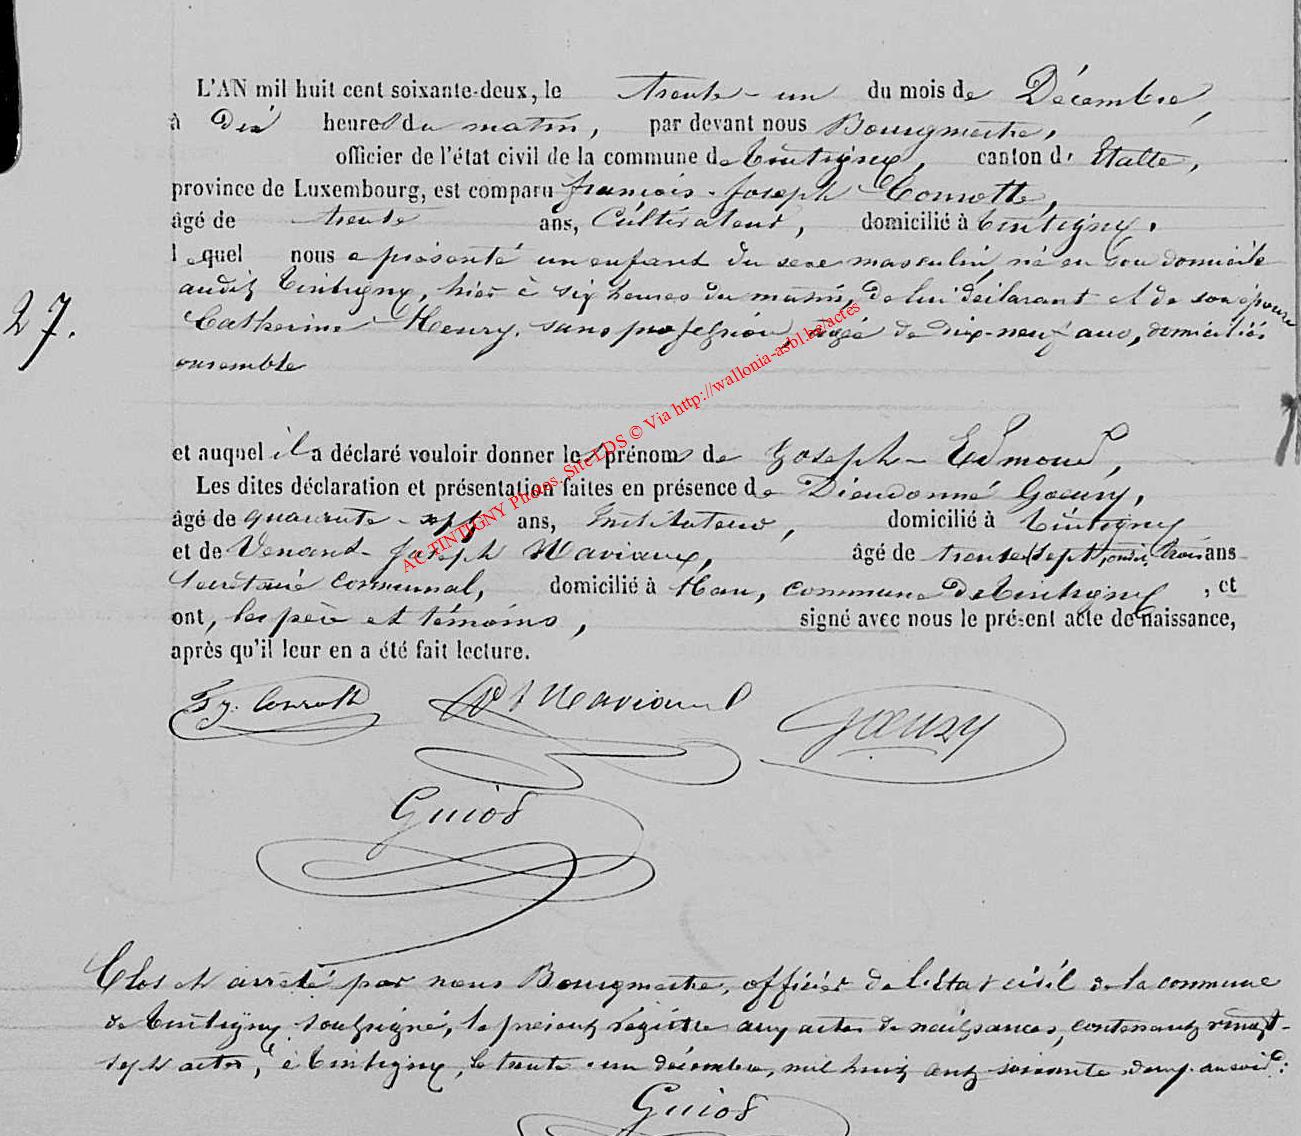 L'AN mil huit cent soixante-deux, le trente-un du mois de Décembre,
à dix heures du matin, par devant nous Bourgmestre,
officier de l'état civil de la commune de Tintigny, canton d'Etalle,
province de Luxembourg, est comparu françois-Joseph
âgé de trente ans, Cultivateur, domicilié à Tintigny,
lequel nous a présenté un enfant du sexe masculin, né en son domicile
audit Tintigny, hier à six heures du matin, de lui déclarant et de son épouse
27.
Catherine Henry, sans profession, âgée de dix-neuf ans, domiciliés
ensemble
et auquel il a déclaré vouloir donner les prénoms de Joseph-Edmond,
Les dites déclaration et présentation faites en présence de Dieudonné Goeury,
âgé de quarante-sept ans, Instituteur, domicilié à Tintigny
et de Venant-Joseph Maviaux, âgé de trente ans
Secrétaire communal, domicilié à Han, commune de Tintigny, et
ont, les père et témoins, signé avec nous le présent acte de naissance,
après qu'il leur en a été fait lecture.
Goeury
Guiot
Clos et arrêté par nous Bourgmestre, officier de l'état civil de la commune
de Tintigny soussigné, le présent registre aux actes de naissances, contenant vingt-
sept actes, à Tintigny, le trente-un décembre, mil huit cent soixante-deux, au soir.
Guiot
AC TINTIGNY Photos. Site LDS © Via http://wallonia-asbl.be/actes